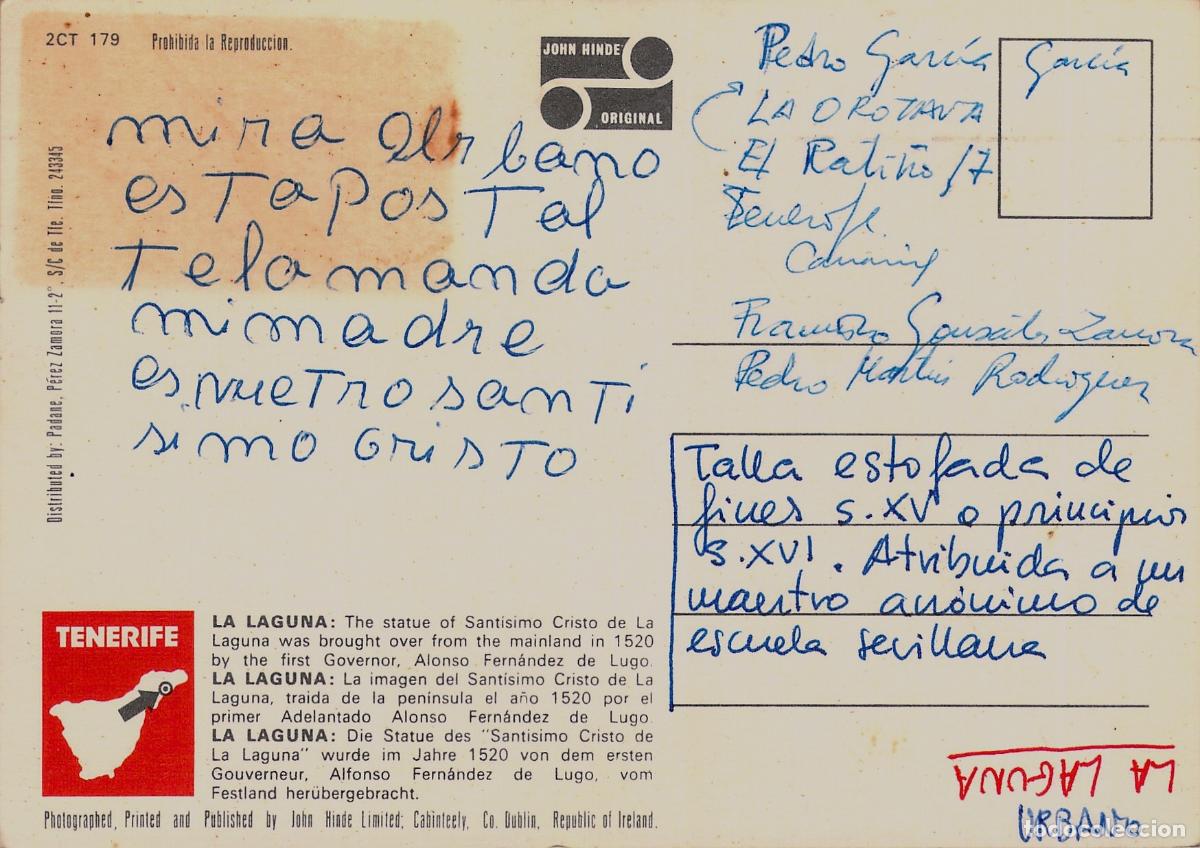 2CT 179 Prohibida la Reproduccion.
JOHN HINDE
ORIGINAL
Distributed by: Padane, Pérez Zamora 11-2°. S/C de Tfe. Tfno. 243345
mira Urbano
esTaposTal
Telamanda
mimadre
esnuetrosanTi
simo crisTo
Pedro García García
LA OROTAVA
El Ratiño /7
Tenerife
Francisco González Zamora
Pedro Martín Rodríguez
Talla estofada de
fines s.XV o principios
s.XVI. Atribuida a un
maestro anónimo de
escuela sevillana
TENERIFE
LA LAGUNA: The statue of Santisimo Cristo de La
Laguna was brought over from the mainland in 1520
by the first Governor, Alonso Fernández de Lugo.
LA LAGUNA: La imagen del Santísimo Cristo de La
Laguna, traida de la península el año 1520 por el
primer Adelantado Alonso Fernández de Lugo.
LA LAGUNA: Die Statue des "Santisimo Cristo de
La Laguna" wurde im Jahre 1520 von dem ersten
Gouverneur, Alfonso Fernández de Lugo, vom
Festland herübergebracht.
Photographed, Printed and Published by John Hinde Limited; Cabinteely, Co. Dublin, Republic of Ireland.
LA LAGUNA
URBANO
todocoleccion